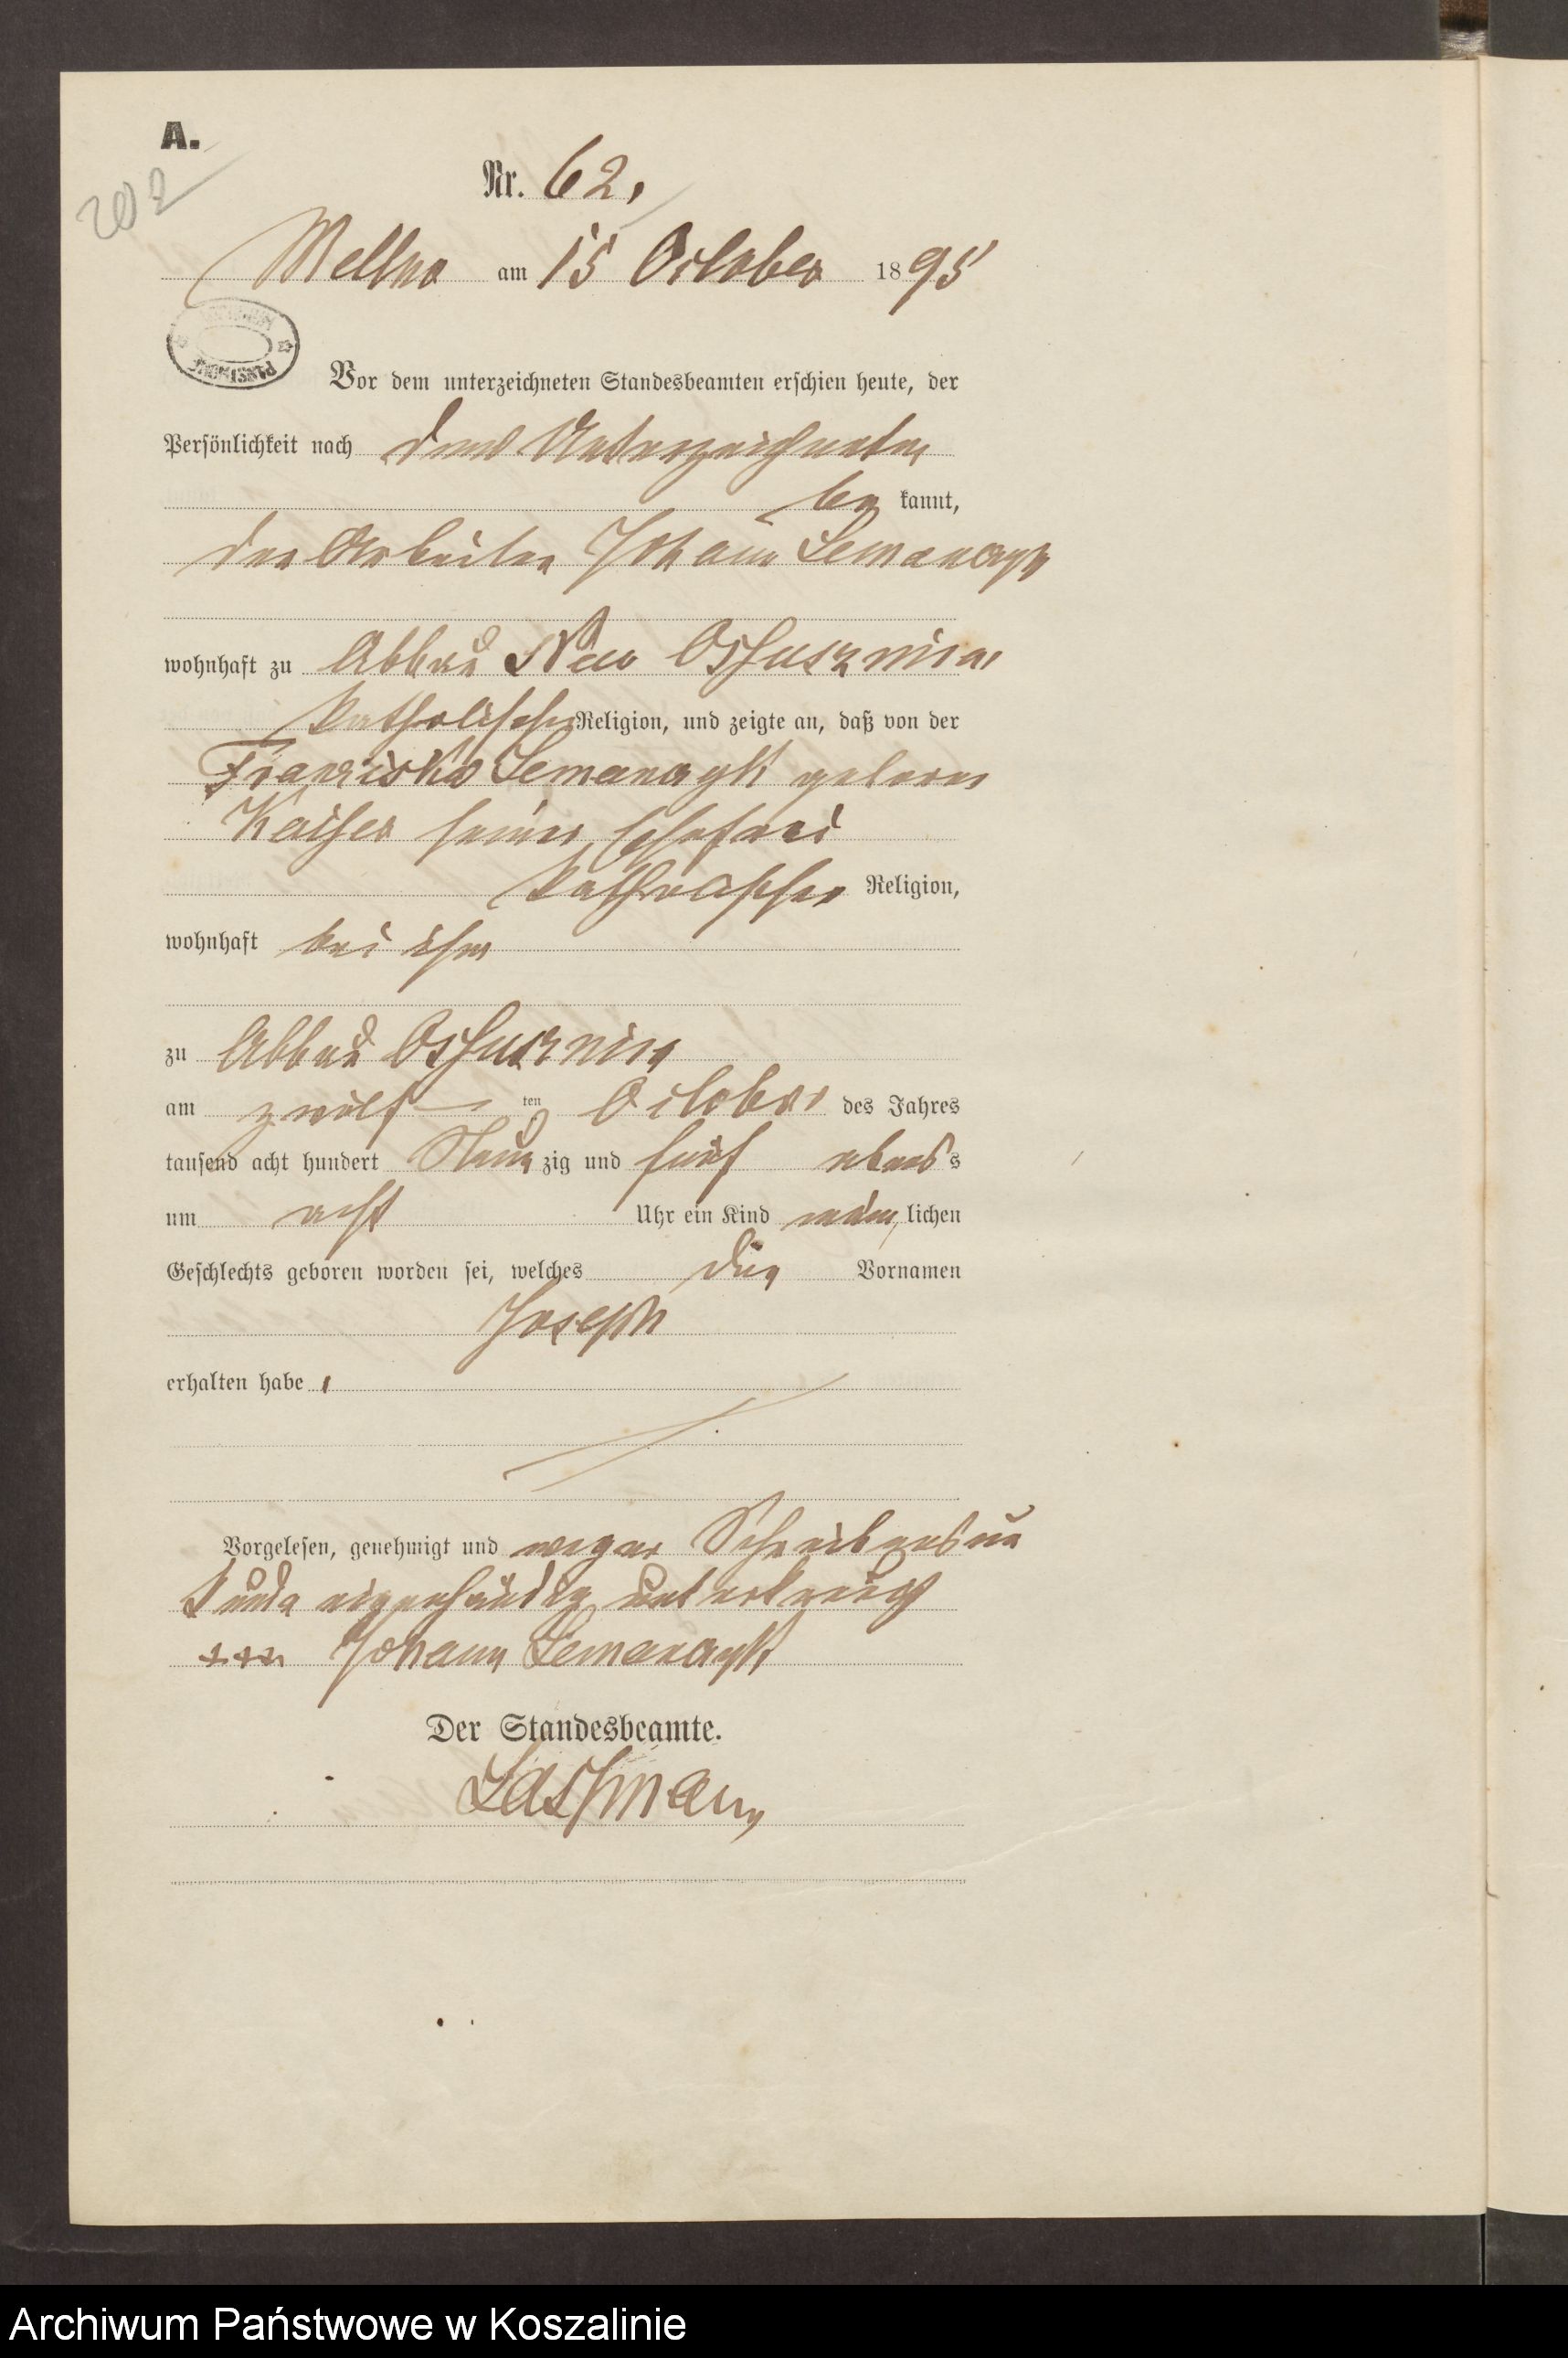 A.
202
Nr. 62.
Mellno am 15 October 1895
Vor dem unterzeichneten Standesbeamten erschien heute, der
Persönlichkeit nach dem Unterzeichneten
be kannt,
der Arbeiter Johann
wohnhaft zu Abbau Neu
katholischer Religion, und zeigte an, daß von der
Franziska geborene
Kaiser seiner Ehefrau
katholischer Religion,
wohnhaft bei ihm
zu Abbau
am zwölf ten October des Jahres
tausend acht hundert Neun zig und fünf abends
um acht Uhr ein Kind männ lichen
Geschlechts geboren worden sei, welches die Vornamen
Joseph
erhalten habe.
Vorgelesen, genehmigt und wegen Schreibensun
kunde eigenhändig unterkreuzt
+++ Johann
Der Standesbeamte.
Archiwum Państwowe w Koszalinie